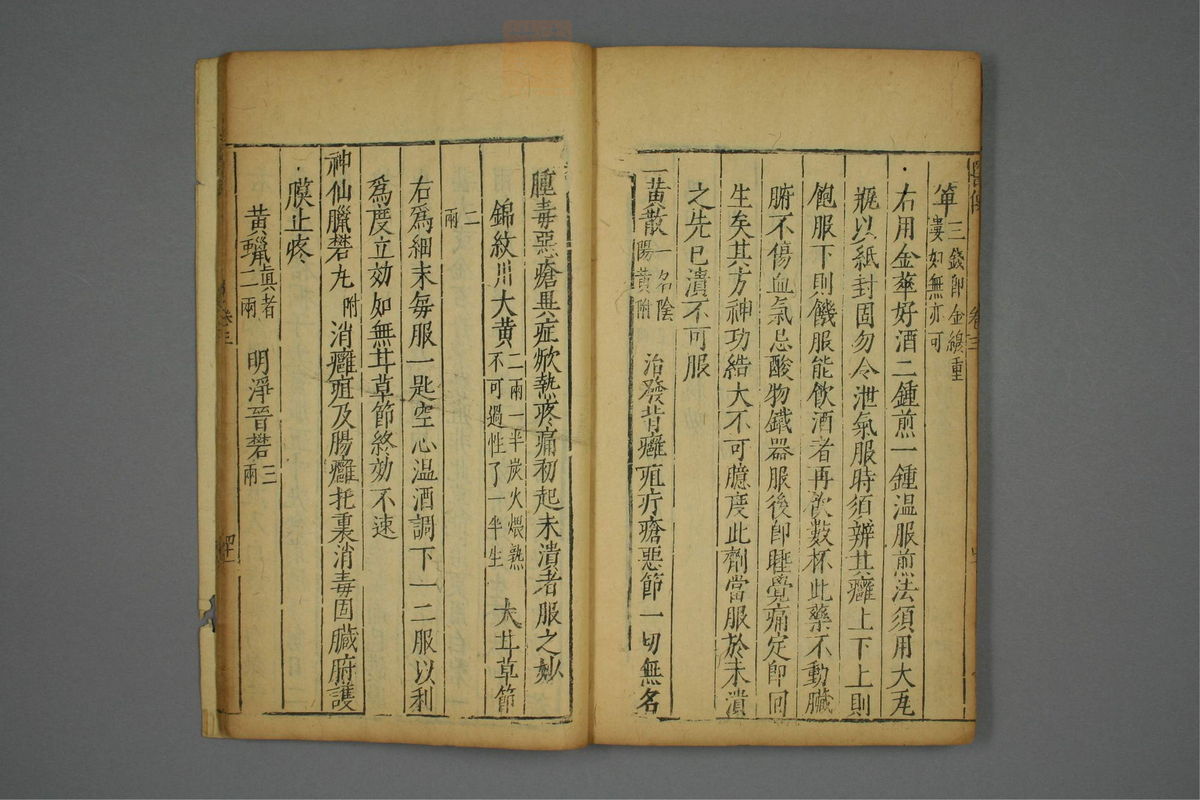 卷三
箄三錢即金線重
蔞如無亦可
右用金藥好酒二鍾煎一鍾温服煎法須用大瓦
瓶以紙封固勿令泄氣服時須辨其癰上下上則
飽服下則饑服能飲酒者再飲數杯此藥不動臟
腑不傷血氣忌酸物鐵器服後卽睡覺痛定卽囘
生矣其方神功結大不可臆度此劑當服於未潰
之先已潰不可服
一黄散一名陰陽黄附 治發背癰疽疔瘡惡節一切無名
腫毒惡瘡異症焮熱疼痛初起未潰者服之妙
錦紋川大黄二兩一半炭火煨熟不可過性了一半生 大甘草節
二兩
右爲細末每服一匙空心温酒調下一二服以利
爲度立効如無甘草節終効不速
神仙臘礬丸附 消癰疽及腸癰托裏消毒固臟腑護
膜止疼
黄蠟真者二兩 明淨晉礬三兩
卷三